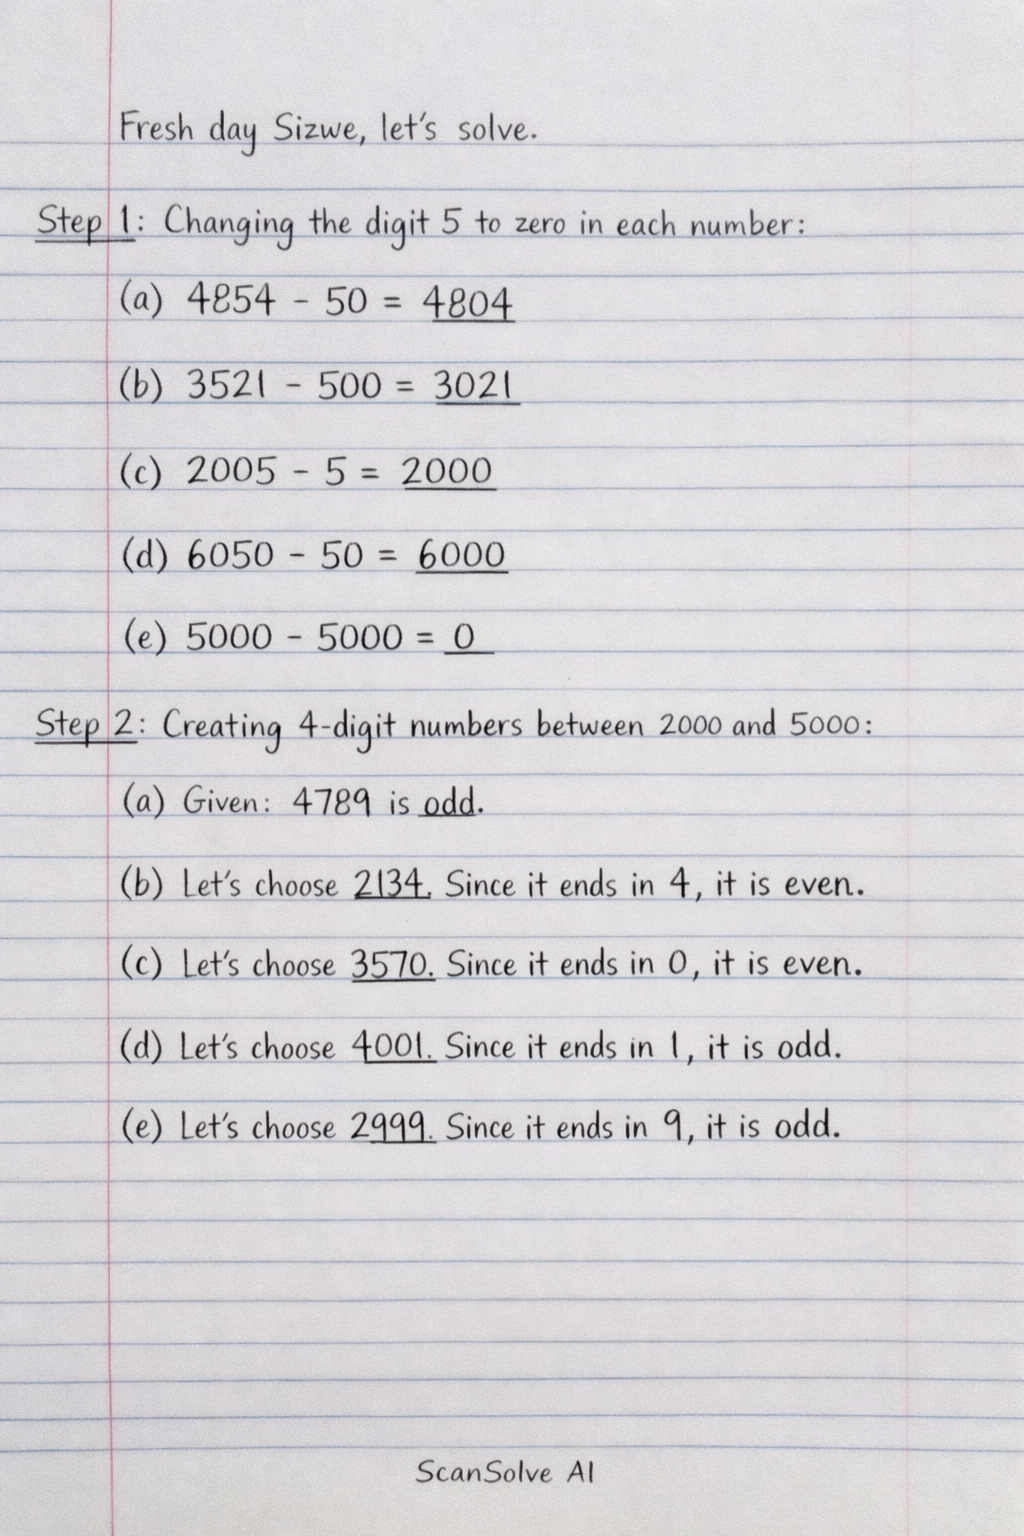 Fresh day Sizwe, let's solve.
Step 1: Changing the digit 5 to zero in each number:
(a) 4854 - 50 = 4804
(b) 3521 - 500 = 3021
(c) 2005 - 5 = 2000
(d) 6050 - 50 = 6000
(e) 5000 - 5000 = 0
Step 2: Creating 4-digit numbers between 2000 and 5000:
(a) Given: 4789 is odd.
(b) Let's choose 2134. Since it ends in 4, it is even.
(c) Let's choose 3570. Since it ends in 0, it is even.
(d) Let's choose 4001. Since it ends in 1, it is odd.
(e) Let's choose 2999. Since it ends in 9, it is odd.
ScanSolve AI